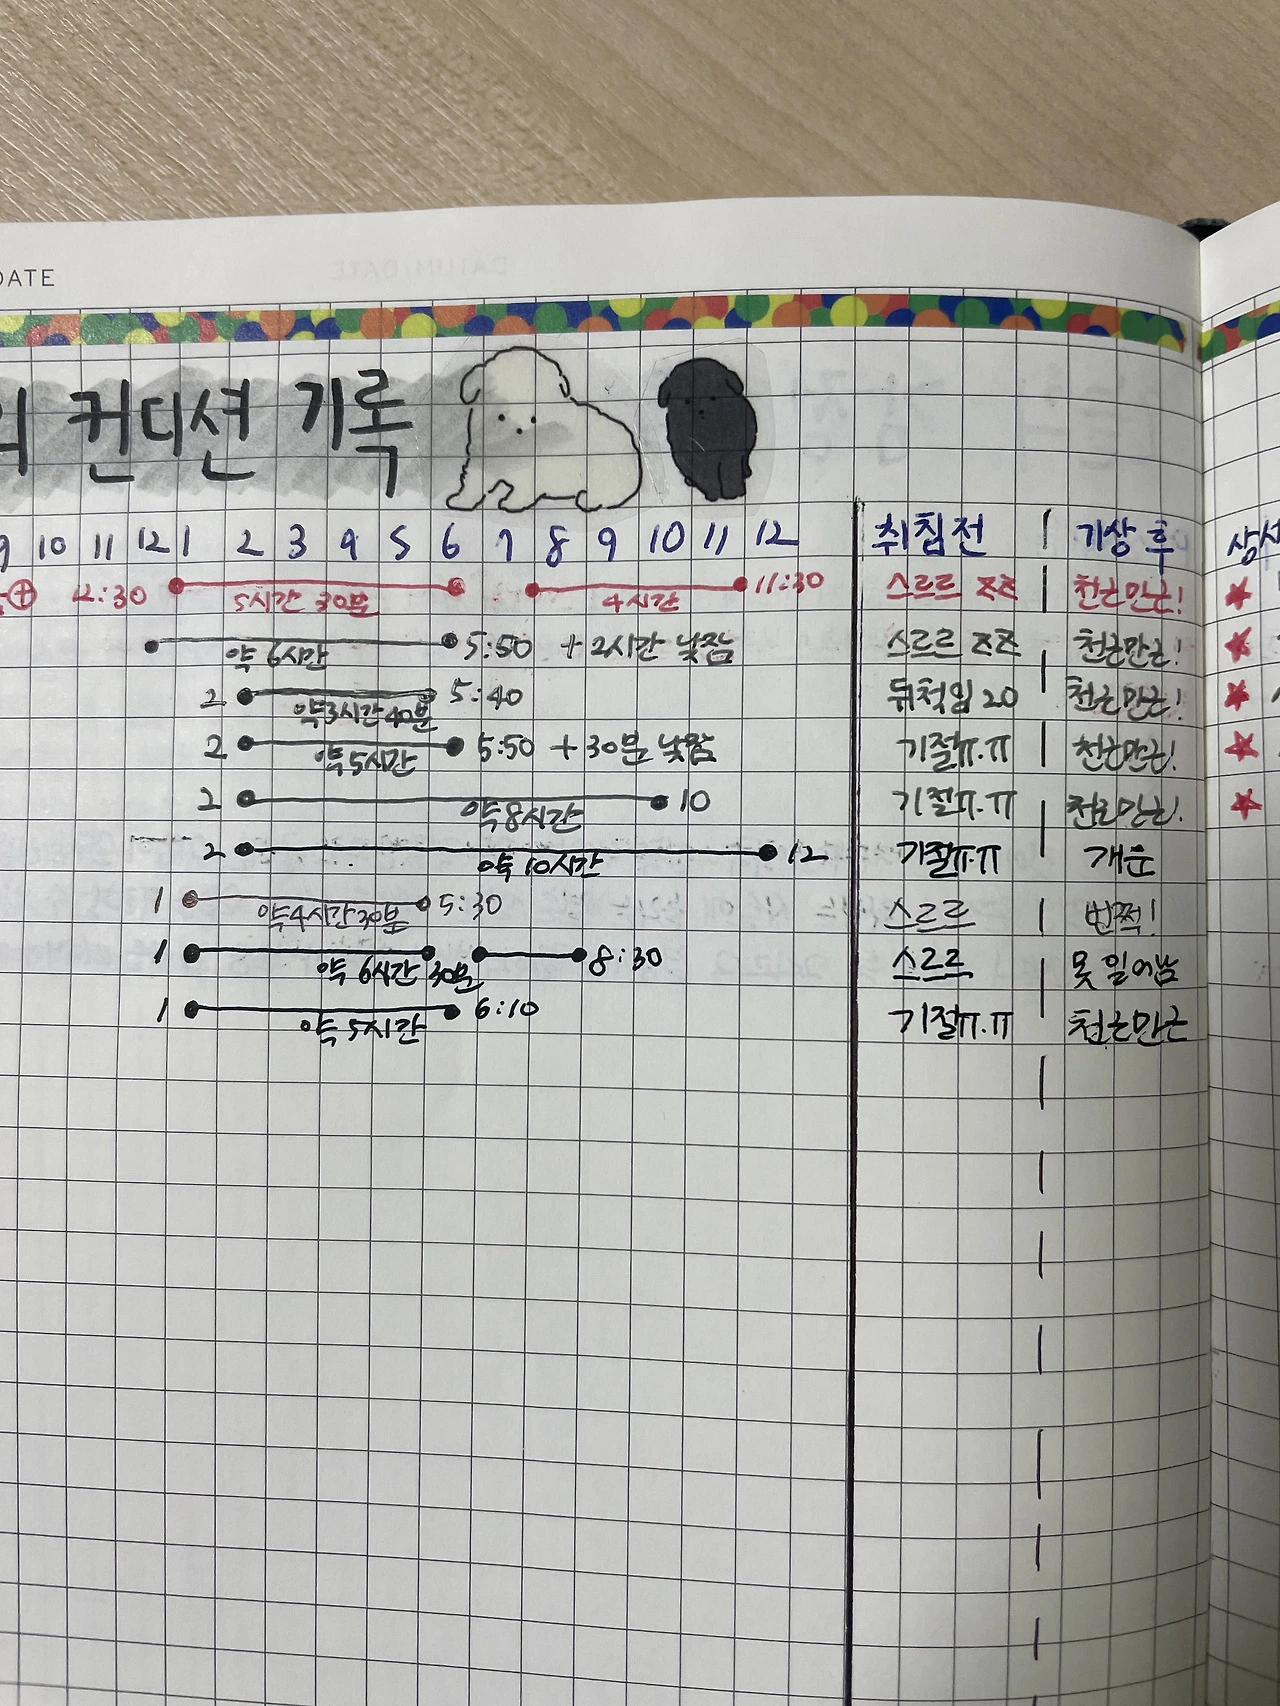 DATE
의 컨디션 기록
9 10 11 12 1 2 3 4 5 6 7 8 9 10 11 12 취침 전 기상 후
12:30 5시간 30분 4시간 11:30 스르르 zz 천근만근!
약 6시간 5:50 + 2시간 낮잠 스르르 zz 천근만근!
2 약3시간40분 5:40 뒤척임 20 천근만근!
2 약5시간 5:50 + 30분 낮잠 기절ㅠ.ㅠ 천근만근!
2 약8시간 10 기절ㅠ.ㅠ 천근만근!
2 약 10시간 12 기절ㅠ.ㅠ 개운
1 약4시간30분 5:30 스르르 번쩍!
1 약 6시간 30분 8:30 스르르 못 일어남
1 약 5시간 6:10 기절ㅠ.ㅠ 천근만근